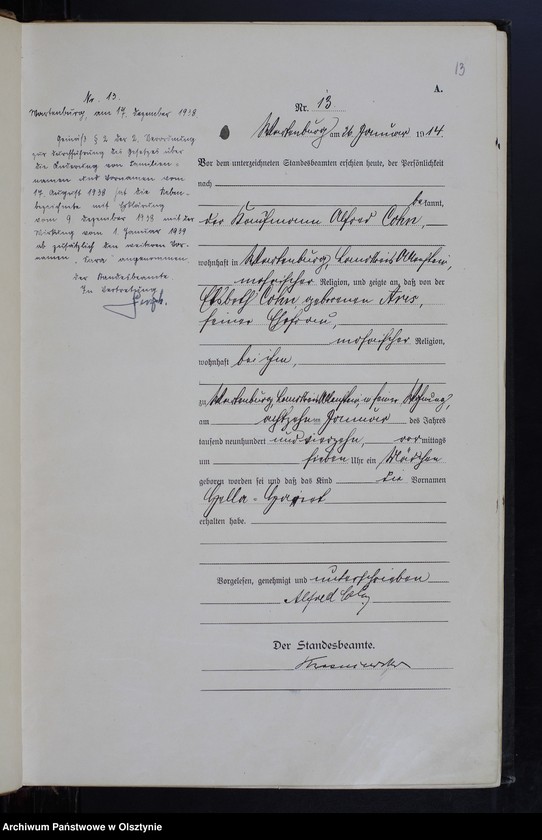 13
A.
Nr. 13.
Wartenburg, am 17. Dezember 1938.
Gemäß § 2 der 2. Verordnung
zur Durchführung des Gesetzes über
die Änderung von Familien-
namen und Vornamen vom
17. August 1938 hat die Neben-
bezeichnete mit Erklärung
vom 9. Dezember 1938 mit der
Wirkung vom 1. Januar 1939
ab zusätzlich den weiteren Vor-
namen „Sara“ angenommen.
Der Standesbeamte.
In Vertretung
Nr. 13
Wartenburg, am 26. Januar 1914.
Vor dem unterzeichneten Standesbeamten erschien heute, der Persönlichkeit
nach
bekannt,
der Kaufmann Alfred Cohn,
wohnhaft in Wartenburg, Landkreis Allenstein,
mosaischer Religion, und zeigte an, daß von der
Elsbeth Cohn, geborenen Aris,
seiner Ehefrau,
mosaischer Religion,
wohnhaft bei ihm,
zu Wartenburg, Landkreis Allenstein, in seiner Wohnung,
am achtzehnten Januar des Jahres
tausend neunhundert und vierzehn, vormittags
um sieben Uhr ein Mädchen
geboren worden sei und daß das Kind die Vornamen
Hella-
erhalten habe.
Vorgelesen, genehmigt und unterschrieben
Alfred Cohn
Der Standesbeamte.
Archiwum Państwowe w Olsztynie